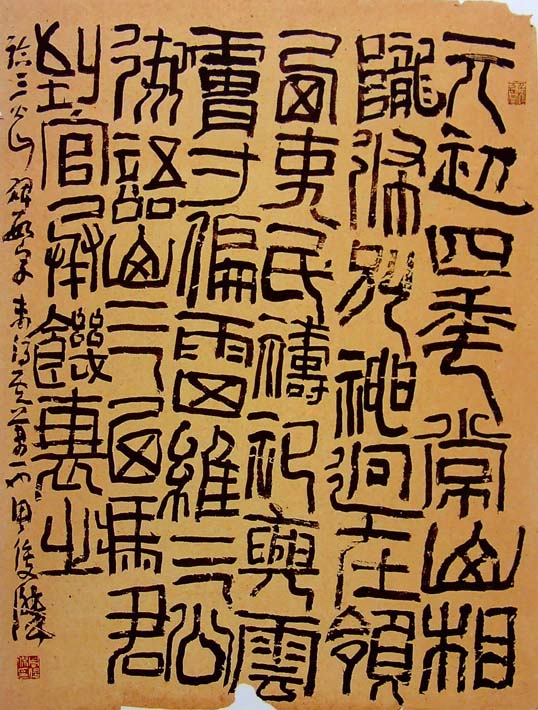 元初四年常山相
隴條別神迥在領
西吏民禱祀興雲
膚寸偏雨四維三公
御語山三西馮君
到官承饑衰之
臨三公山碑數字未得其萬一